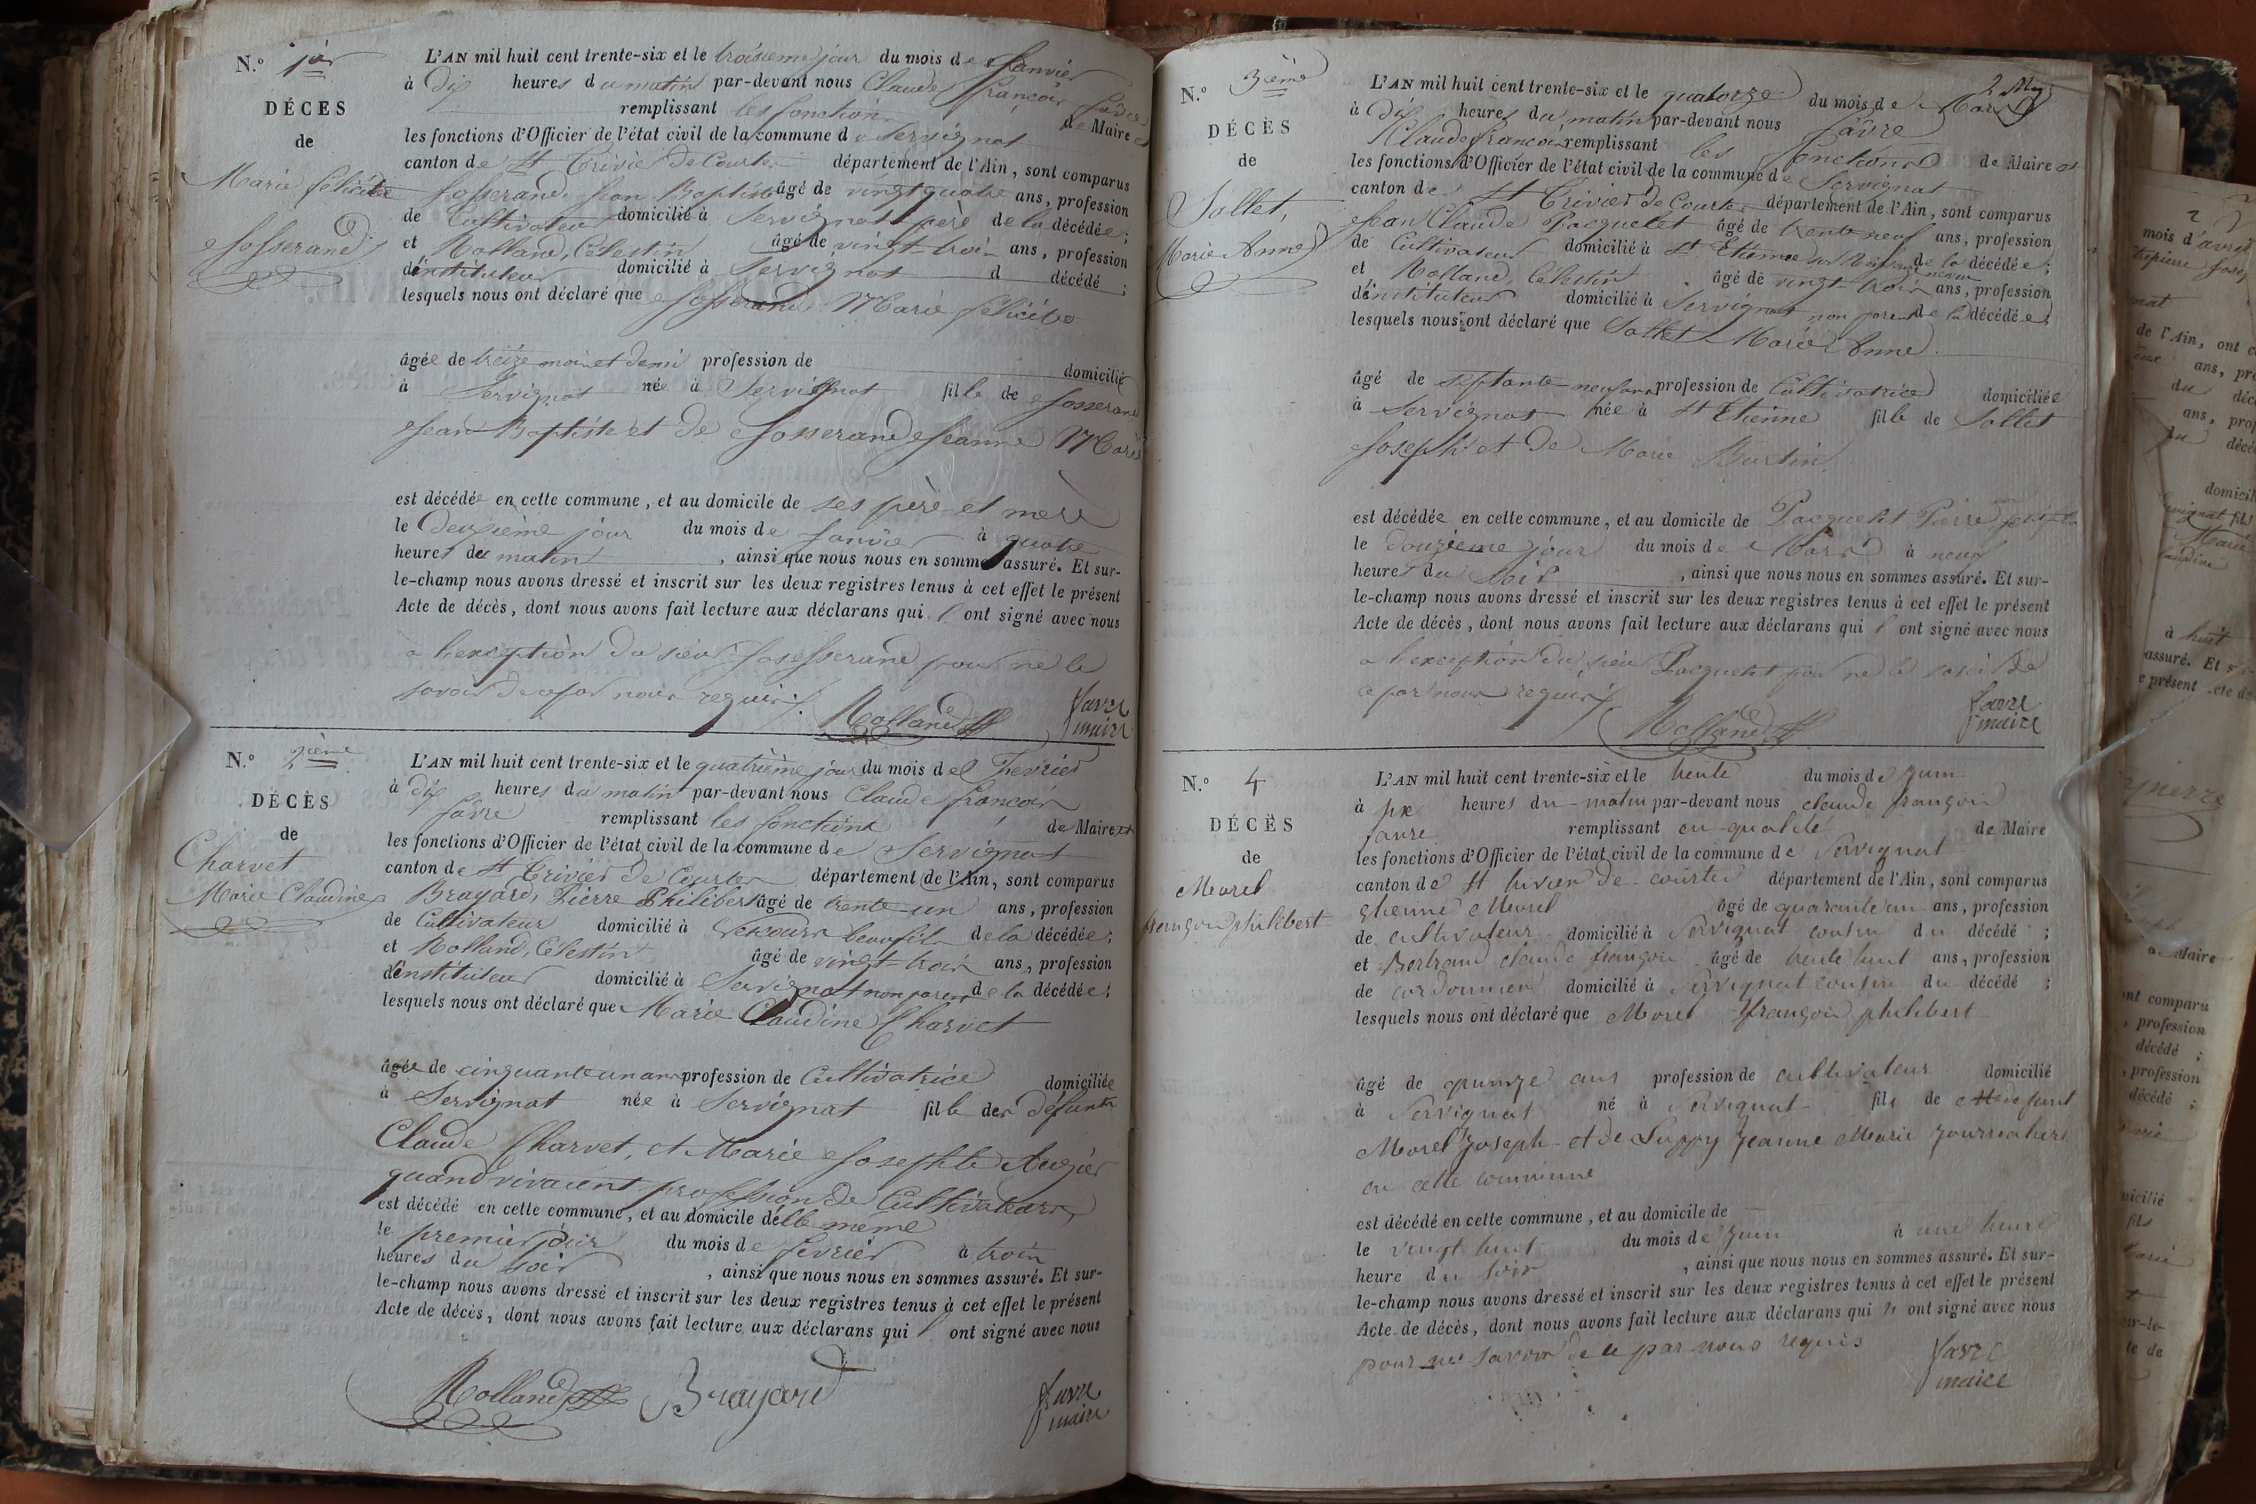 N.° 1er
DÉCES
de
Marie félicité
Josserand
L'AN mil huit cent trente-six et le troisième jour du mois de Janvier
à dix heures du matin par-devant nous Claude françois favre
remplissant les fonctions de Maire et
les fonctions d'Officier de l'état civil de la commune de Servignat
canton de St Trivier de Courtes département de l'Ain, sont comparus
Josserand Jean Baptiste âgé de vingt quatre ans, profession
de Cultivateur domicilié à Servignat père de la décédée;
et Rolland, Célestin âgé de vingt-trois ans, profession
d'instituteur domicilié à Servignat d décédé;
lesquels nous ont déclaré que Josserand Marie félicité
âgée de treize mois et demi profession de domicilié
à Servignat née à Servignat fille de Josserand
Jean Baptiste et de Josserand Jeanne Marie
est décédée en cette commune, et au domicile de ses père et mère
le deuxième jour du mois de Janvier à quatre
heures du matin, ainsi que nous nous en sommes assuré. Et sur-
le-champ nous avons dressé et inscrit sur les deux registres tenus à cet effet le présent
Acte de décès, dont nous avons fait lecture aux déclarans qui ont signé avec nous
a l'exception du sieur Josserand pour ne le
savoir de ce par nous requis.
Rolland favre maire
N.° 2ième
DÉCÈS
de
Charvet
Marie Claudine
L'AN mil huit cent trente-six et le quatrième jour du mois de fevrier
à dix heures du matin par-devant nous Claude françois
favre remplissant les fonctions de Maire et
les fonctions d'Officier de l'état civil de la commune de Servignat
canton de St Trivier de Courtes département de l'Ain, sont comparus
Brayard, Pierre Philibert âgé de trente-un ans, profession
de Cultivateur domicilié à Lescours beaufils de la décédée;
et Rolland, Célestin âgé de vingt-trois ans, profession
d'instituteur domicilié à Servignat non parent de la décédée;
lesquels nous ont déclaré que Marie Claudine Charvet
âgée de cinquante un ans profession de Cultivatrice domiciliée
à Servignat née à Servignat fille des défunts
Claude Charvet, et Marie Josephte
quand vivaient profession de Cultivateurs,
est décédé en cette commune, et au domicile d'elle même
le premier jour du mois de fevrier à trois
heures du soir, ainsi que nous nous en sommes assuré. Et sur-
le-champ nous avons dressé et inscrit sur les deux registres tenus à cet effet le présent
Acte de décès, dont nous avons fait lecture aux déclarans qui ont signé avec nous
Rolland Brayard favre maire
2
N.° 3ième
DÉCÈS
de
Sallet,
Marie Anne
L'AN mil huit cent trente-six et le quatorze du mois de Mars
à dix heures du matin par-devant nous favre
Claude françois remplissant les fonctions de Maire et
les fonctions d'Officier de l'état civil de la commune de Servignat
canton de St Trivier de Courtes département de l'Ain, sont comparus
Jean Claude Pacquelet âgé de trente neuf ans, profession
de Cultivateur domicilié à St Etienne sur Reyssouze neveu de la décédée;
et Rolland, Célestin âgé de vingt-trois ans, profession
d'instituteur domicilié à Servignat non parent de la décédée;
lesquels nous ont déclaré que Sallet Marie Anne
âgé de septante-neuf ans profession de Cultivatrice domiciliée
à Servignat née à St Etienne fille de Sallet
Joseph et de Marie Burtin
est décédée en cette commune, et au domicile de Pacquelet Pierre Joseph
le douzième jour du mois de Mars à neuf
heures du soir, ainsi que nous nous en sommes assuré. Et sur-
le-champ nous avons dressé et inscrit sur les deux registres tenus à cet effet le présent
Acte de décès, dont nous avons fait lecture aux déclarans qui ont signé avec nous
a l'exception du sieur Pacquelet pour ne le savoir de
ce par nous requis
Rolland favre maire
N.° 4
DÉCÈS
de
Morel
françois philibert
L'AN mil huit cent trente-six et le trente du mois de Juin
à six heures du matin par-devant nous claude françois
favre remplissant en qualité de Maire
les fonctions d'Officier de l'état civil de la commune de Servignat
canton de St trivier de courtes département de l'Ain, sont comparus
Etienne Morel âgé de quarante un ans, profession
de cultivateur domicilié à Servignat cousin du décédé;
et Bertrand claude françois âgé de trente huit ans, profession
de cordonnier domicilié à Servignat cousin du décédé;
lesquels nous ont déclaré que Morel françois philibert
âgé de quinze ans profession de cultivateur domicilié
à Servignat né à Servignat fils de defunt
Morel Joseph et de Luppy Jeanne Marie journaliers
en cette commune
est décédé en cette commune, et au domicile de
le vingt huit du mois de Juin à une heure
heure du soir, ainsi que nous nous en sommes assuré. Et sur-
le-champ nous avons dressé et inscrit sur les deux registres tenus à cet effet le présent
Acte de décès, dont nous avons fait lecture aux déclarans qui n ont signé avec nous
pour ne savoir de ce par nous requis
favre maire